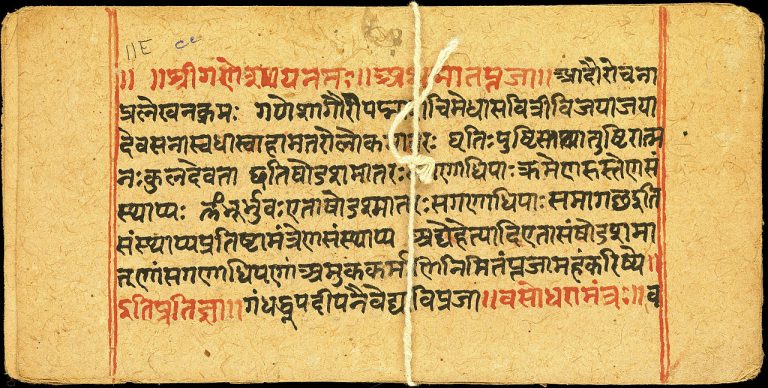 ॥E ce
॥ ॥श्रीगणेशायनमः॥अथ मातपूजा॥आदौरोचना
प्रलेखनक्रमः गणेशगौरीपद्मा शचिमेधासवित्रीविजयाजया
देवसेनास्वधास्वाहामातरोलोकमातरः धृतिःपुष्टिस्तथातुष्टिरात्म
नःकुलदेवता इतिषोडशमातरः गणाधिपाःक्रमेणहस्तेणसं
स्थाप्यः र्भूर्भुवःएताषोडशमातरःसगणाधिपाःसमागछइति
संस्थाप्यप्रतिष्ठामंत्रेणसंस्थाप्य अद्येहेत्यादिएतासंषोडशमा
तृणांसगणाधिपणां अमुककर्म निमितंपूजामहंकरिष्ये॥
इतिप्रतिज्ञा॥गंधधूपदीपनैवेद्य विपूजा॥वसोधरामंत्रः॥व